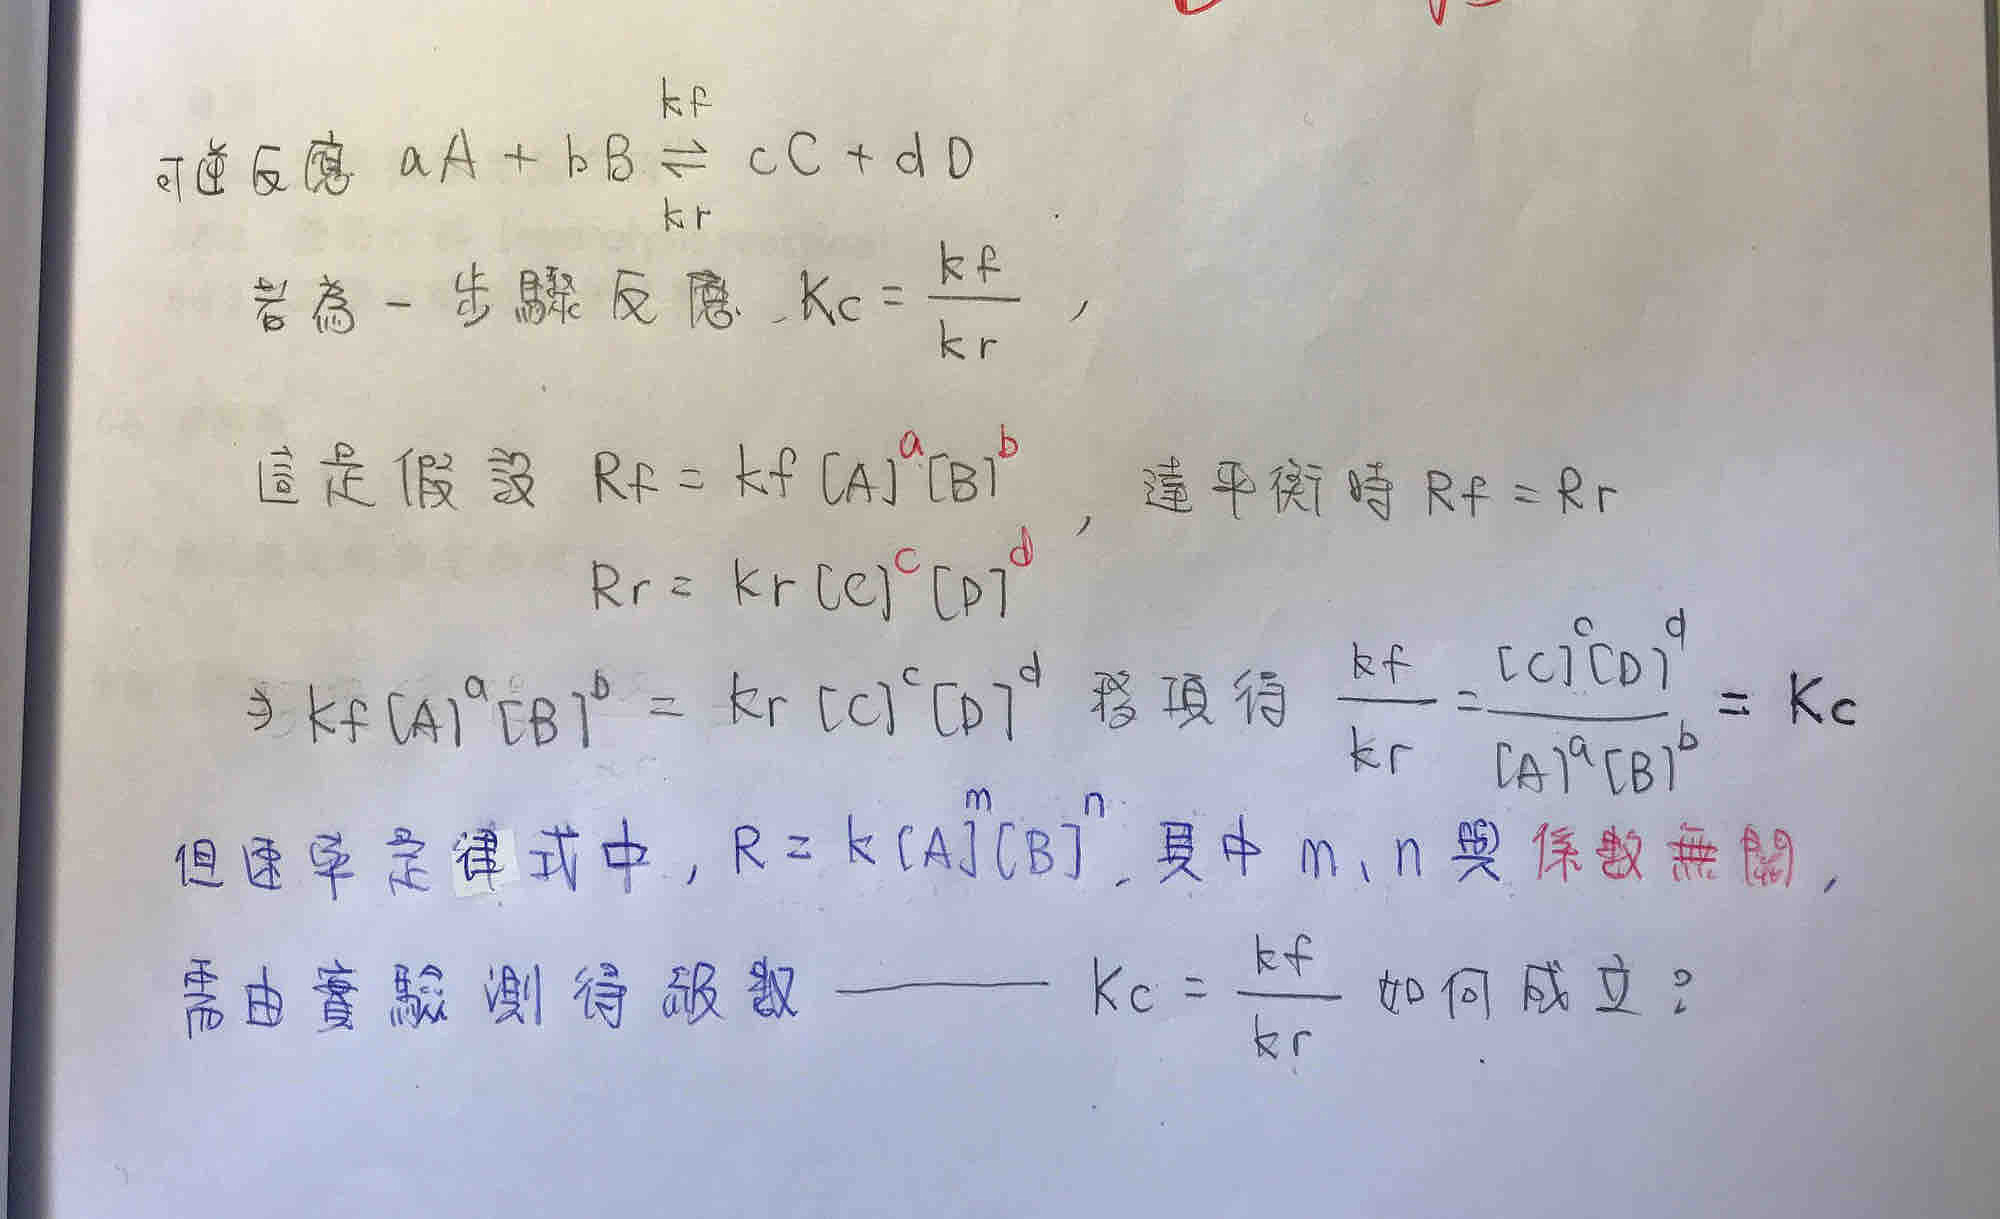 kf
可逆反應 aA + bB ⇌ cC + dD
kr
若為一步驟反應、Kc = kf / kr ,
這是假設 Rf = kf [A]^a [B]^b , 達平衡時 Rf = Rr
Rr = kr [C]^c [D]^d
⇒ kf [A]^a [B]^b = kr [C]^c [D]^d 移項得 kf / kr = [C]^c [D]^d / [A]^a [B]^b = Kc
但速率定律式中, R = k [A]^m [B]^n、其中 m、n 與係數無關,
需由實驗測得級數 —— Kc = kf / kr 如何成立?